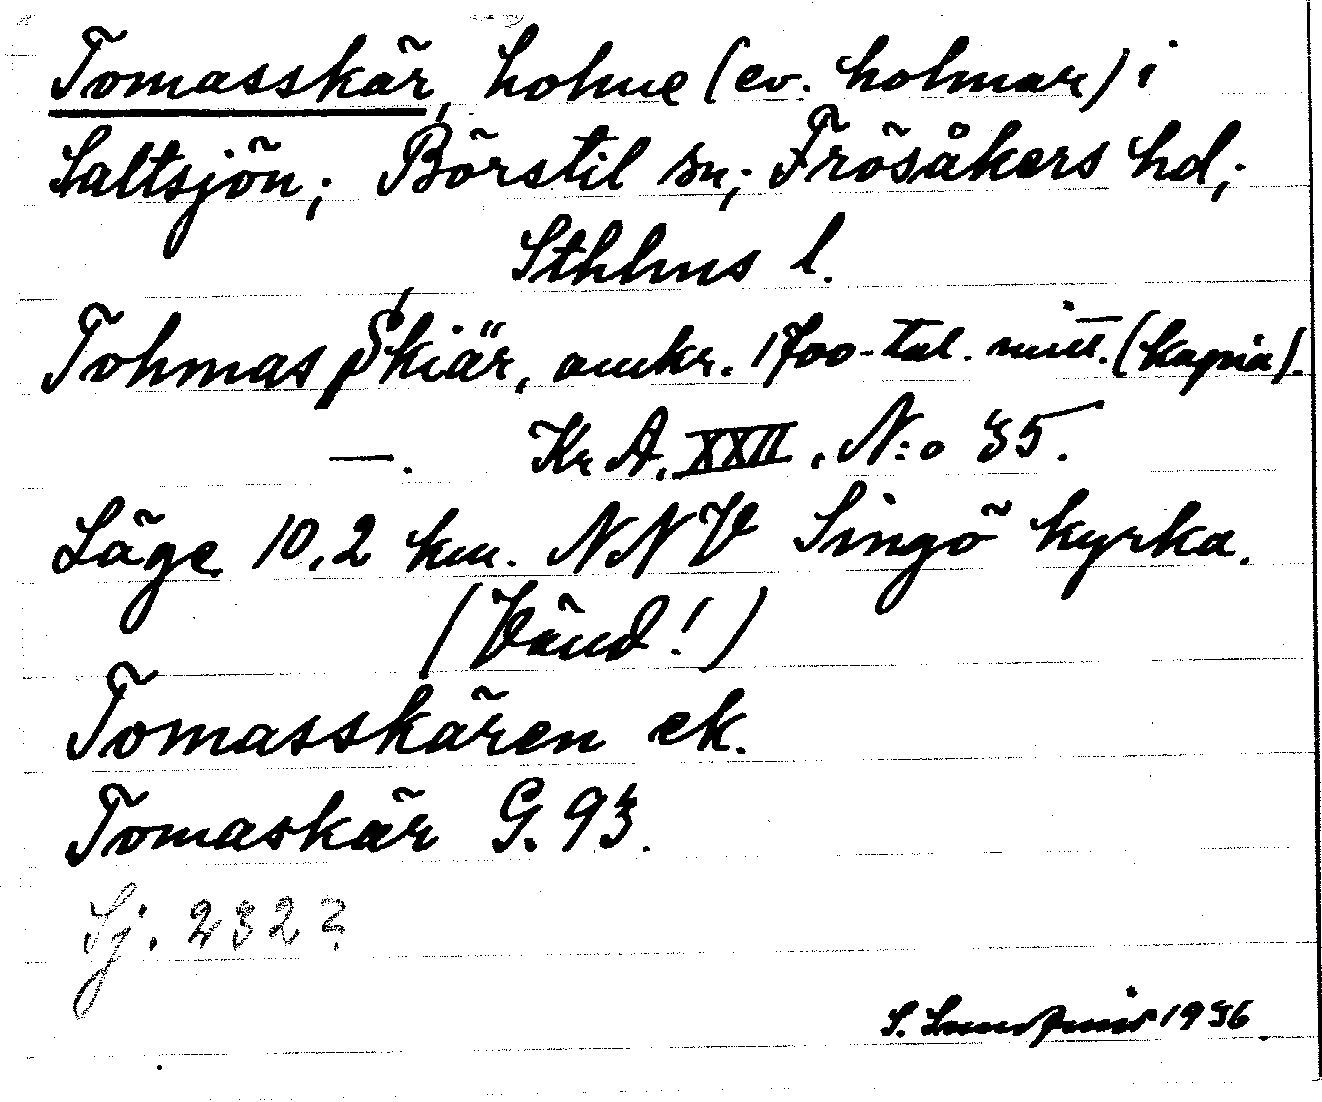 Tomasskär, holme (ev. holmar) i
Saltsjön; Börstil sn; Frösåkers hd;
Sthlms l.
Tohmas Skiär, omkr. 1700-tal. mitt. (kopia).
—. Kr A. XXII. N:o 35.
Läge 10.2 km. NNV Singö kyrka.
(Vänd!)
Tomasskären ek.
Tomaskär G. 93.
Sj. 232?
S. Lundqvist 1936